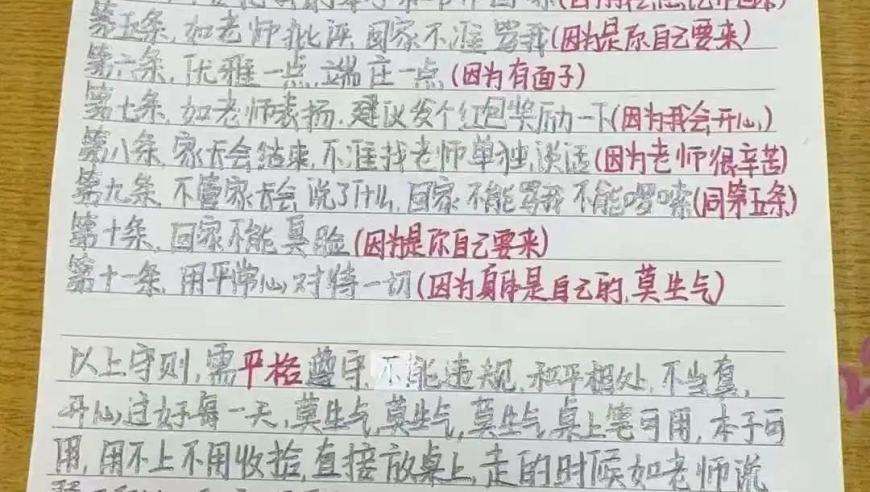 第五条、如老师批评、回家不准骂我(因为是你自己要来)
第六条、优雅一点、端庄一点(因为有面子)
第七条、如老师表扬、建议发个红包奖励一下(因为我会开心)
第八条、家长会结束、不准找老师单独谈话(因为老师很辛苦)
第九条、不管家长会说了什么、回家不能骂我不能啰嗦(同第五条)
第十条、回家不能臭脸(因为是你自己要来)
第十一条、用平常心对待一切(因为身体是自己的、莫生气)
以上守则、需平格遵守、不能违规、和平相处、不当真、
开心过好每一天、莫生气、莫生气、莫生气桌上笔可用、本子可
用、用不上不用收拾、直接放桌上、走的时候如老师说